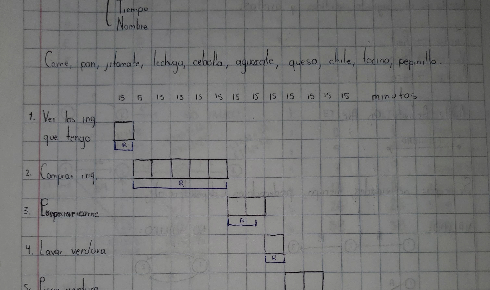 Tiempo
Nombre
Carne, pan, jitomate, lechuga, cebolla, aguacate, queso, chile, tocino, pepinillo.
15 15 15 15 15 15 15 15 15 15 15 15 minutos
1. Ver los ing.
que tengo
R
2. Comprar ing.
R
3.
R
4. Lavar verdura
R
5. verdura